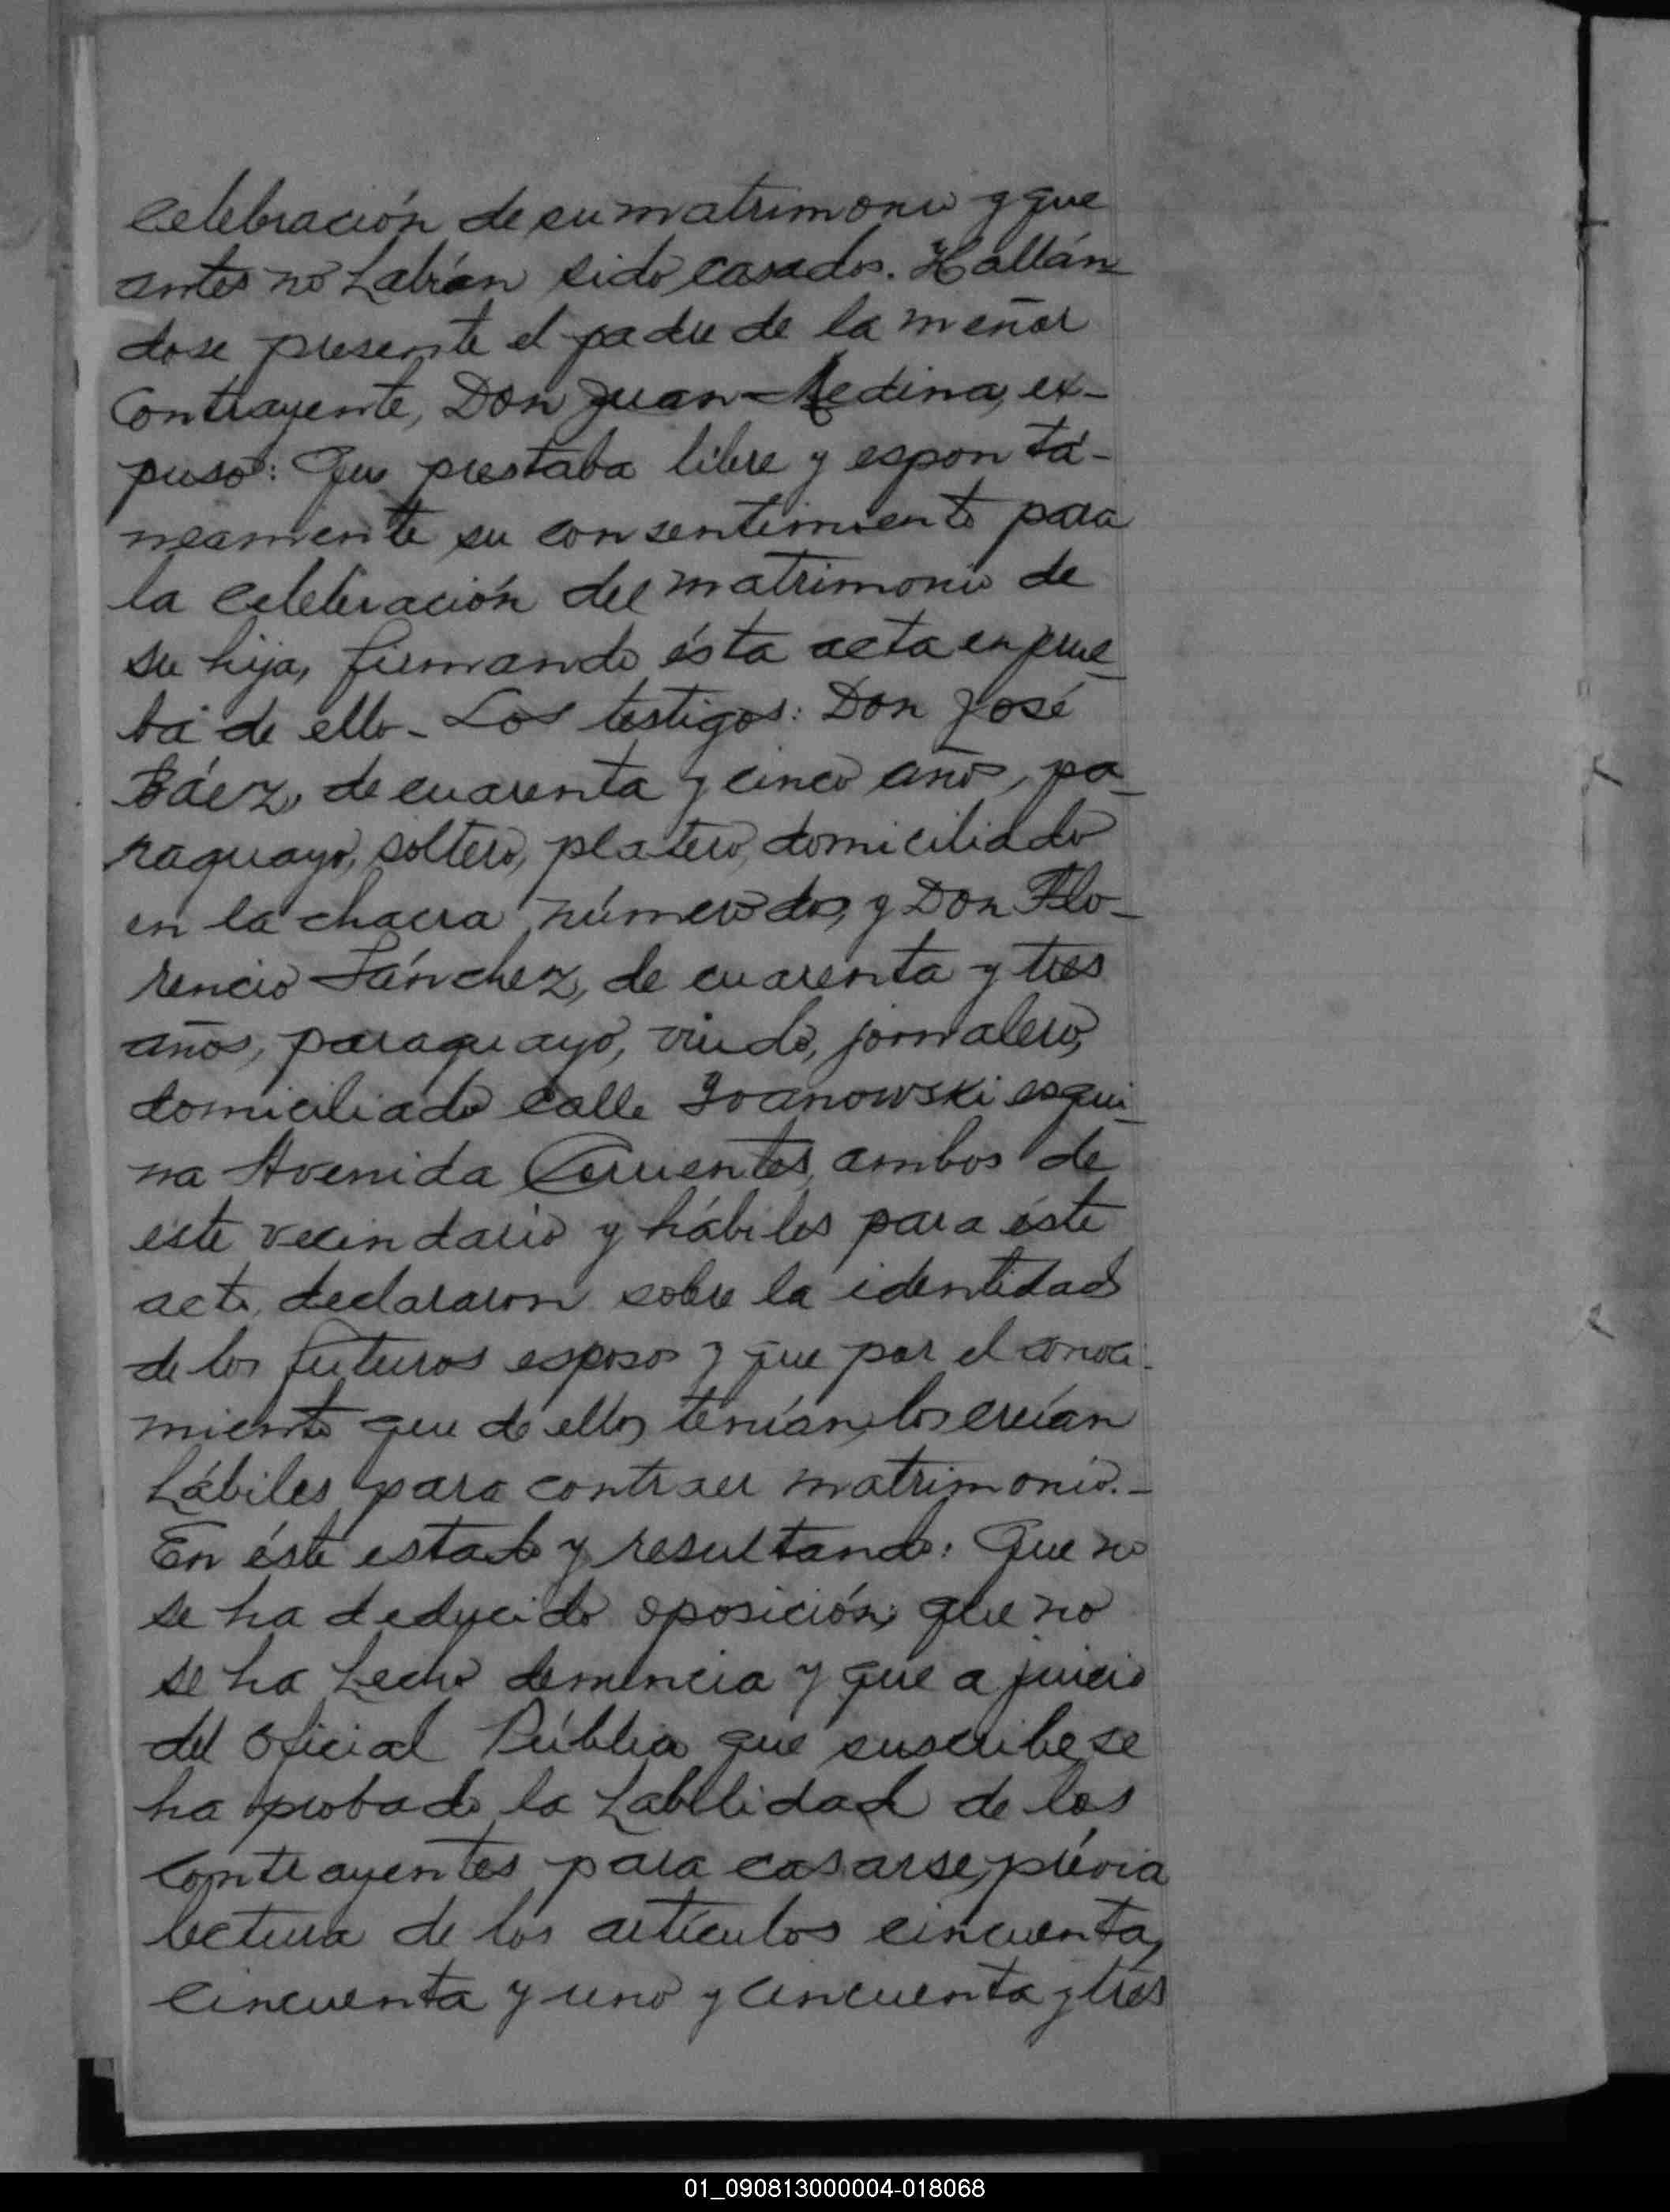 celebración de su matrimonio y que
antes no habían sido casados. Hallán
dose presente el padre de la menor
contrayente, Don Juan Medina, ex-
puso: Que prestaba libre y espontá-
neamente su consentimiento para
la celebración del matrimonio de
su hija, firmando ésta acta en prue_
ba de ello - Los testigos: Don José
Báez, de cuarenta y cinco años, pa_
raguayo, soltero, platero, domiciliado
en la chacra número dos, y Don Flo_
rencio Sánchez, de cuarenta y tres
años, paraguayo, viudo, jornalero,
domiciliado calle Ivanowski esqui_
na Avenida Corrientes, ambos de
éste vecindario y hábiles para éste
acto, declararon sobre la identidad
de los futuros esposos y que por el conoci-
miento que de ellos tenían, los creían
hábiles para contraer matrimonio.-
En éste estado y resultando: Que no
se ha deducido oposición; que no
se ha hecho denuncia y que a juicio
del Oficial Público que suscribe se
ha probado la habilidad de los
contrayentes para casarse, prévia
lectura de los artículos cincuenta,
cincuenta y uno y cincuenta y tres
01_090813000004-018068